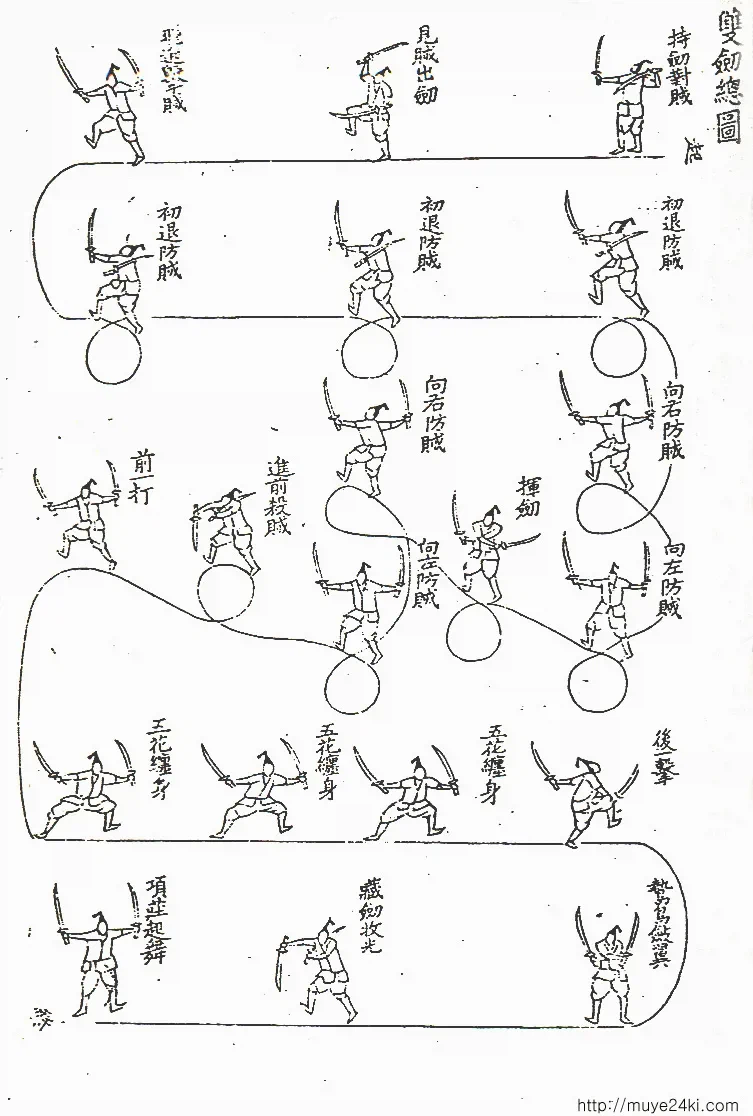 雙劍總圖
持劍對賊
見賊出劍
飛進擊賊
初退防賊
初退防賊
初退防賊
向右防賊
向右防賊
揮劍
進前殺賊
前一打
向左防賊
向左防賊
後一擊
五花纏身
五花纏身
五花纏身
鷙鳥斂翼
藏劍收光
項莊起舞
http://muye24ki.com